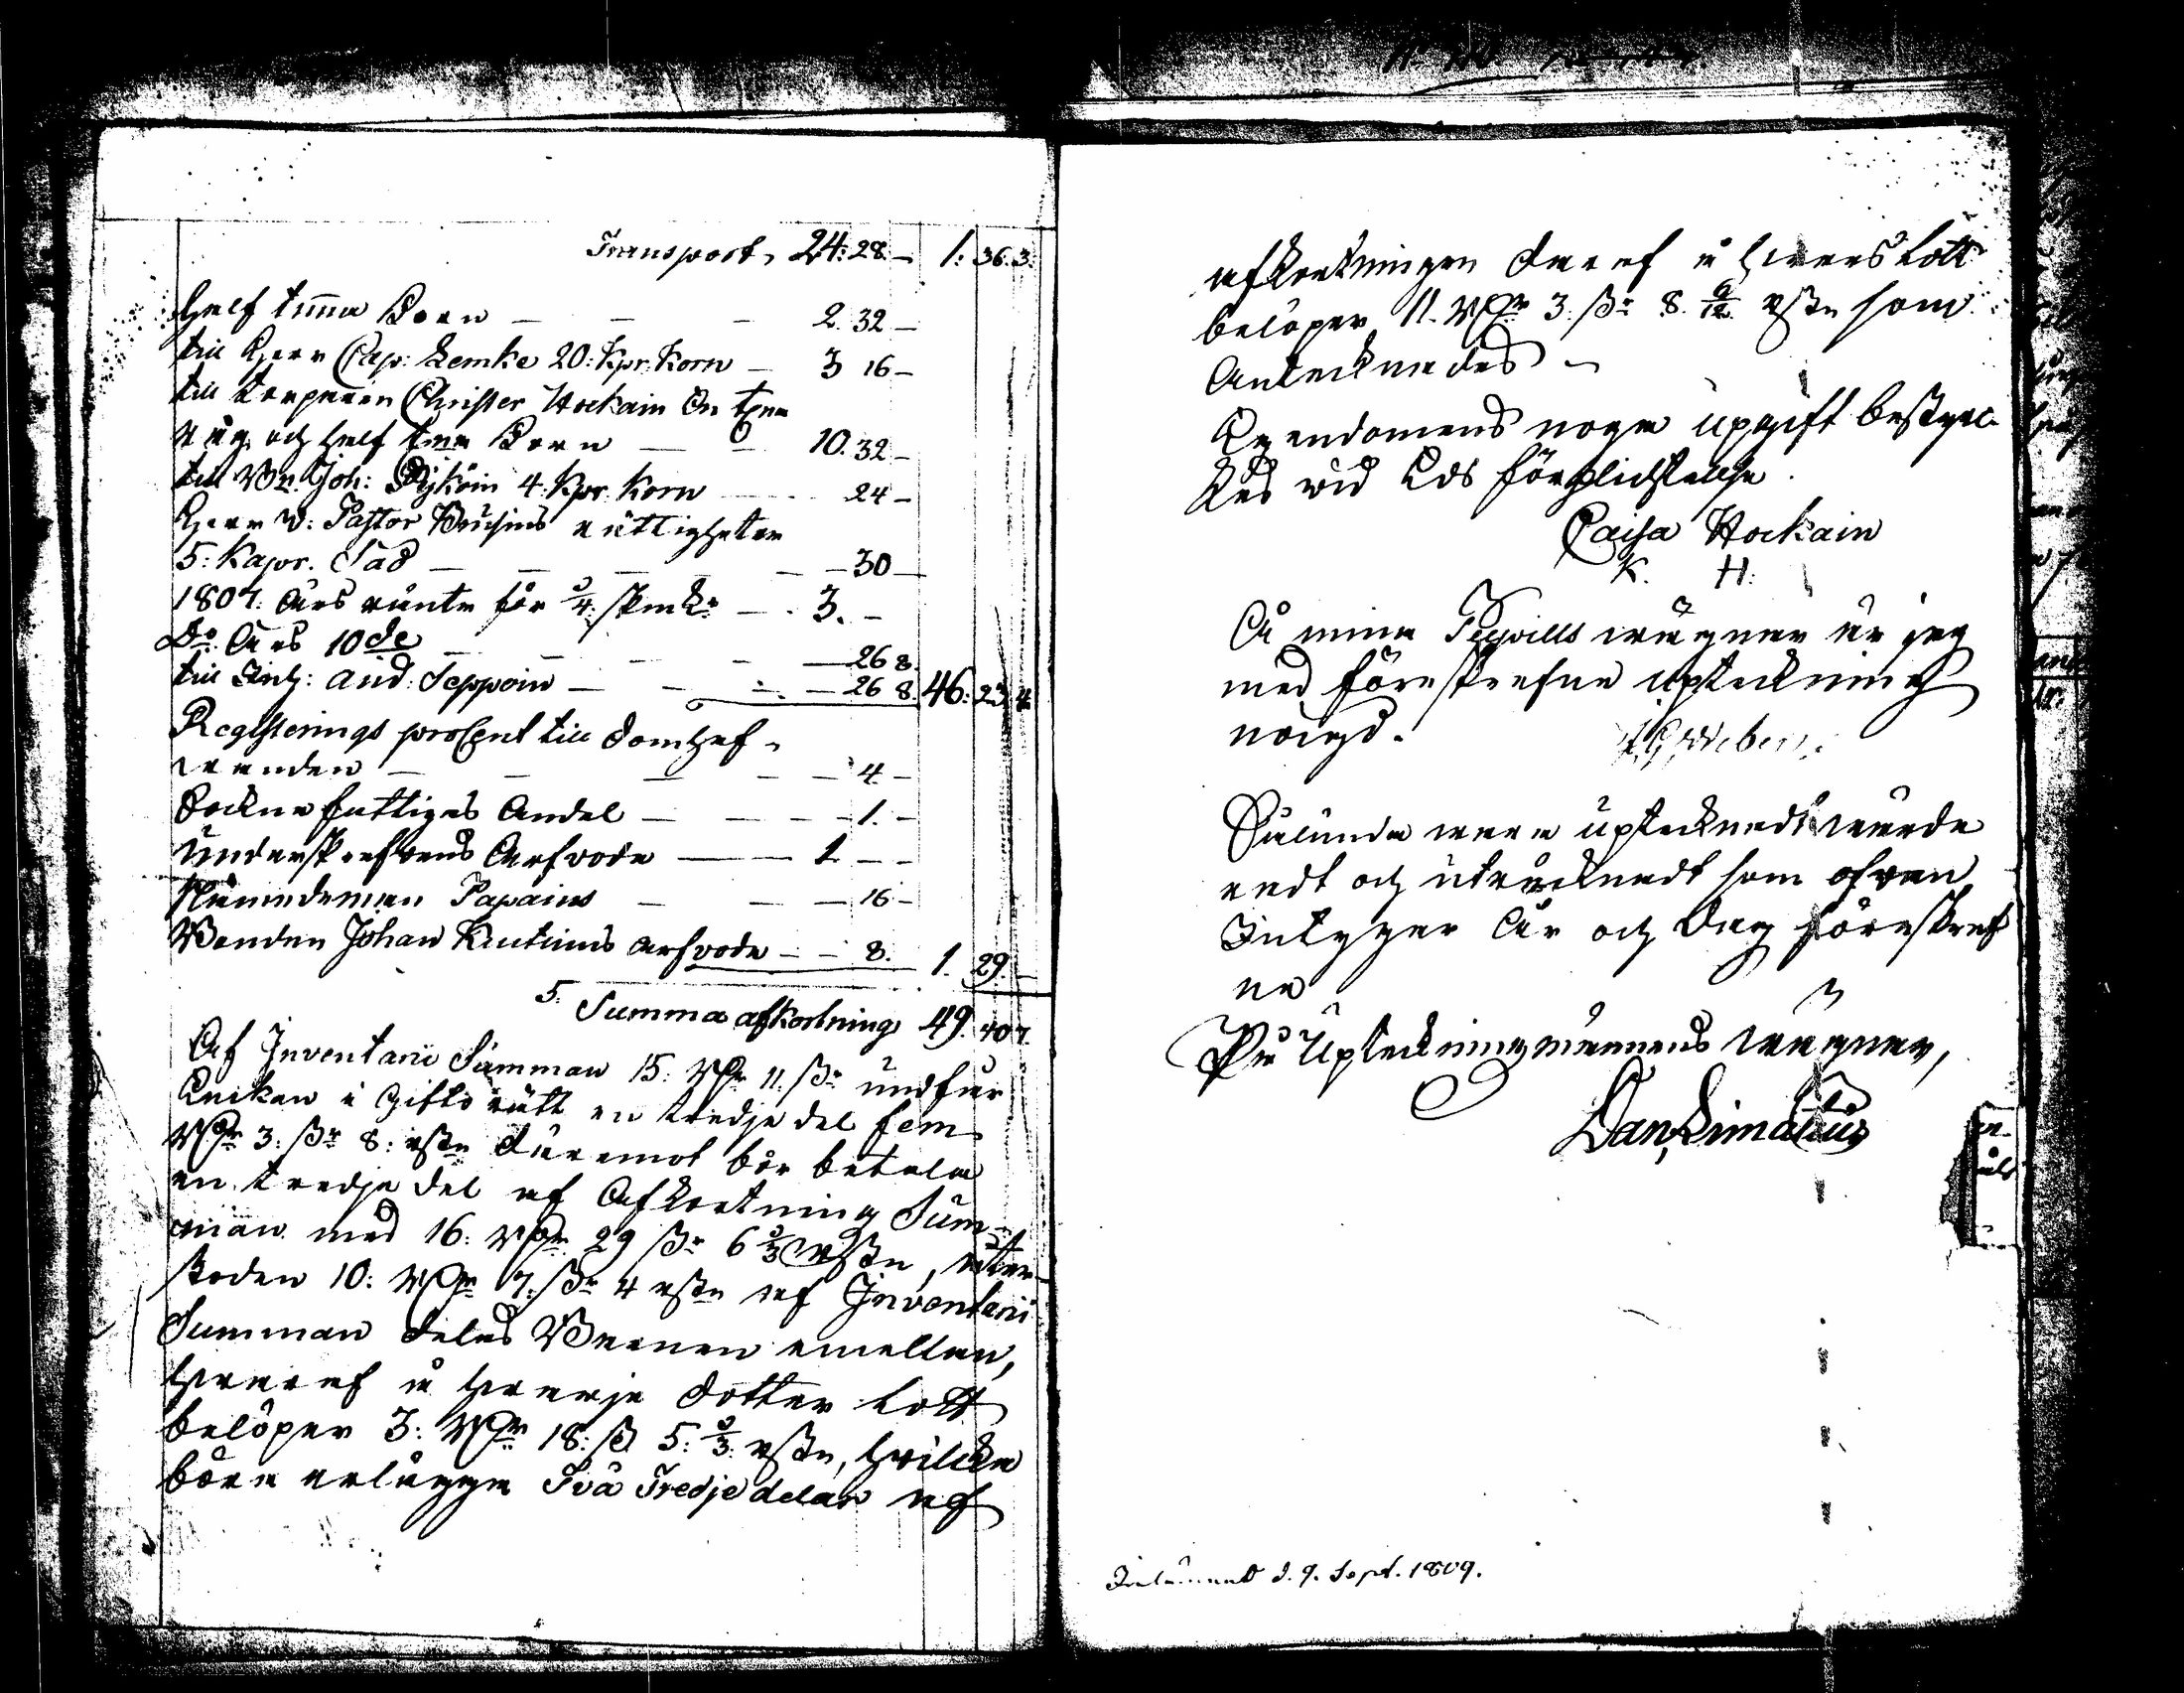 Transport, 24: 28 - 1: 36. 3.
half tunna Korn - - - 2. 32 -
till Herr Cap: Lemke 20: Kpr Korn - 3 16 -
till torparen Christer Hockain En tunna
råg och half tunna Korn - - 10. 32 -
till Joh: Pyköin 4: Kpr. Korn - 24 -
Herr V: Pastor Krusius rättigheter
5: Kapr. Säd - - - - 30 -
1807: års ränta för 3/4: skm - - 3. -
Do års 10de - - - - 26 8.
till And: Seppoin - - - 26 8. 46: 23. 4
Registerings proCent till Domhaf-
wanden - - - - 4. -
Sockne fattigas Andel - - - 1. -
underskrefwens Arfvode - - 1 - -
Nämndeman Papains - - 16 -
Bonden Johan Kutuins arfvode - - 8. 1. 29. -
5: Summa afkortning 49. 40 7.
Af Inventarii Summan 15: RDr 11: sr undfår
Enkan i Giftorätt en tredje del fem
RDr 3: sr 8: rst däremot bör betala
en tredje del af Afkortning Sum-
man med 16: RDr 29 sr 6 2/3 rst, åter-
stoden 10: RDr 7: sr 4 rst af Inventarii
Summan delas Barnen emellan,
hwaraf å hwarje dotter lott
belöper 3: RDr 18: s 5: 2/3: rst, hwilcka
böra erlägga Två Tredje delar af
afkortningen daraf å hwars Lott
belöper 11. RDr 3. sr 8. rst som
Antecknades -
Egendomens noga upgift bestyrc-
kes wid Eds förplichtelse.
Caisa Hockain
K. H:
Å mina Pupills wägnar är jag
med föreskrefne upteckning
nöigd.
Sålunda wara uptecknadt wärde-
radt och uträcknadt som ofwan
Intygar År och Dag föreskref-
ne
På Upteckningsmännens wägnar,
Dan, Limatius
Inlämnad d. 9. Sept. 1809.